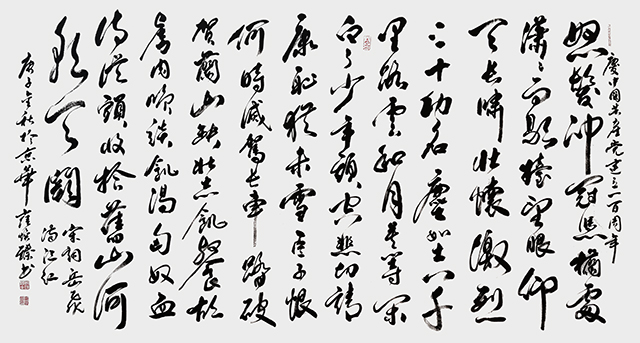 慶中國共產黨建立一百周年
怒髮沖冠憑欄處
瀟瀟雨歇抬望眼仰
天長嘯壯懷激烈
三十功名塵如土八千
里路雲和月莫等閑
白了少年頭空悲切靖
康恥猶未雪臣子恨
何時滅駕長車踏破
賀蘭山缺壯志飢餐胡
虜肉笑談飢渴匈奴血
待從頭收拾舊山河
朝天闕
宋詞岳飛
滿江紅
庚子金秋於京華書